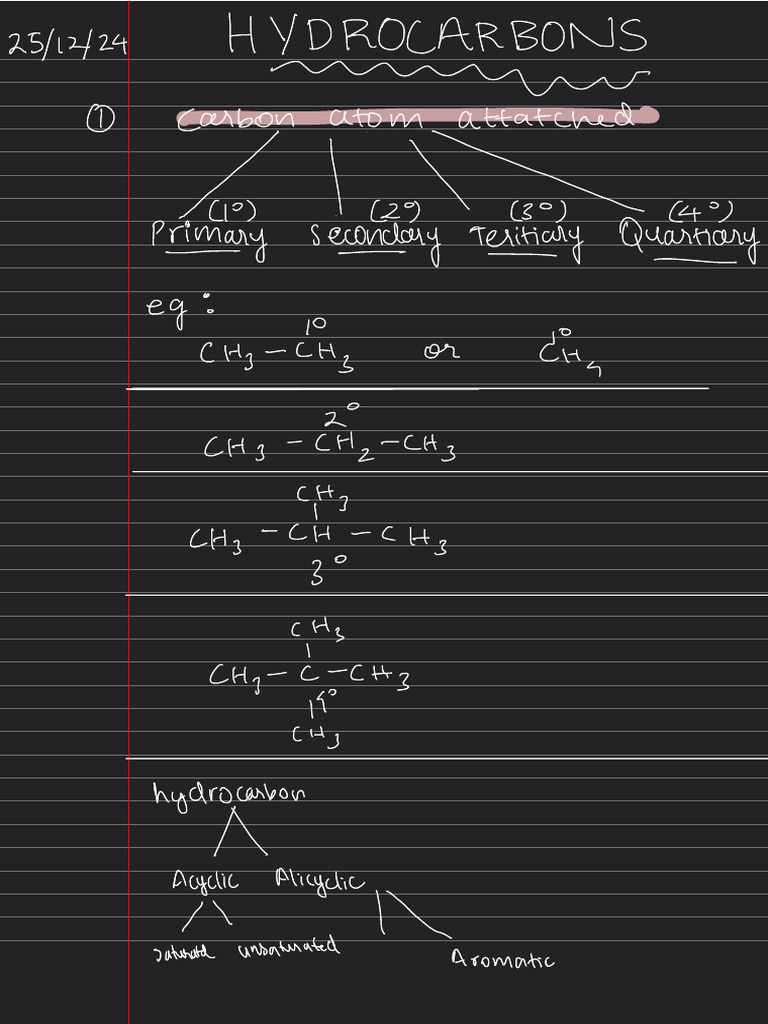 25/12/24 HYDROCARBONS
① Carbon atom attatched
(1°) (2°) (3°) (4°)
Primary Secondary Teritiary Quartiary
eg:
1° 1°
CH3 – CH3 or CH4
2°
CH3 – CH2 – CH3
CH3
|
CH3 – CH – CH3
3°
CH3
|
CH3 – C – CH3
| 4°
CH3
hydrocarbon
Acyclic Alicyclic
saturated unsaturated Aromatic